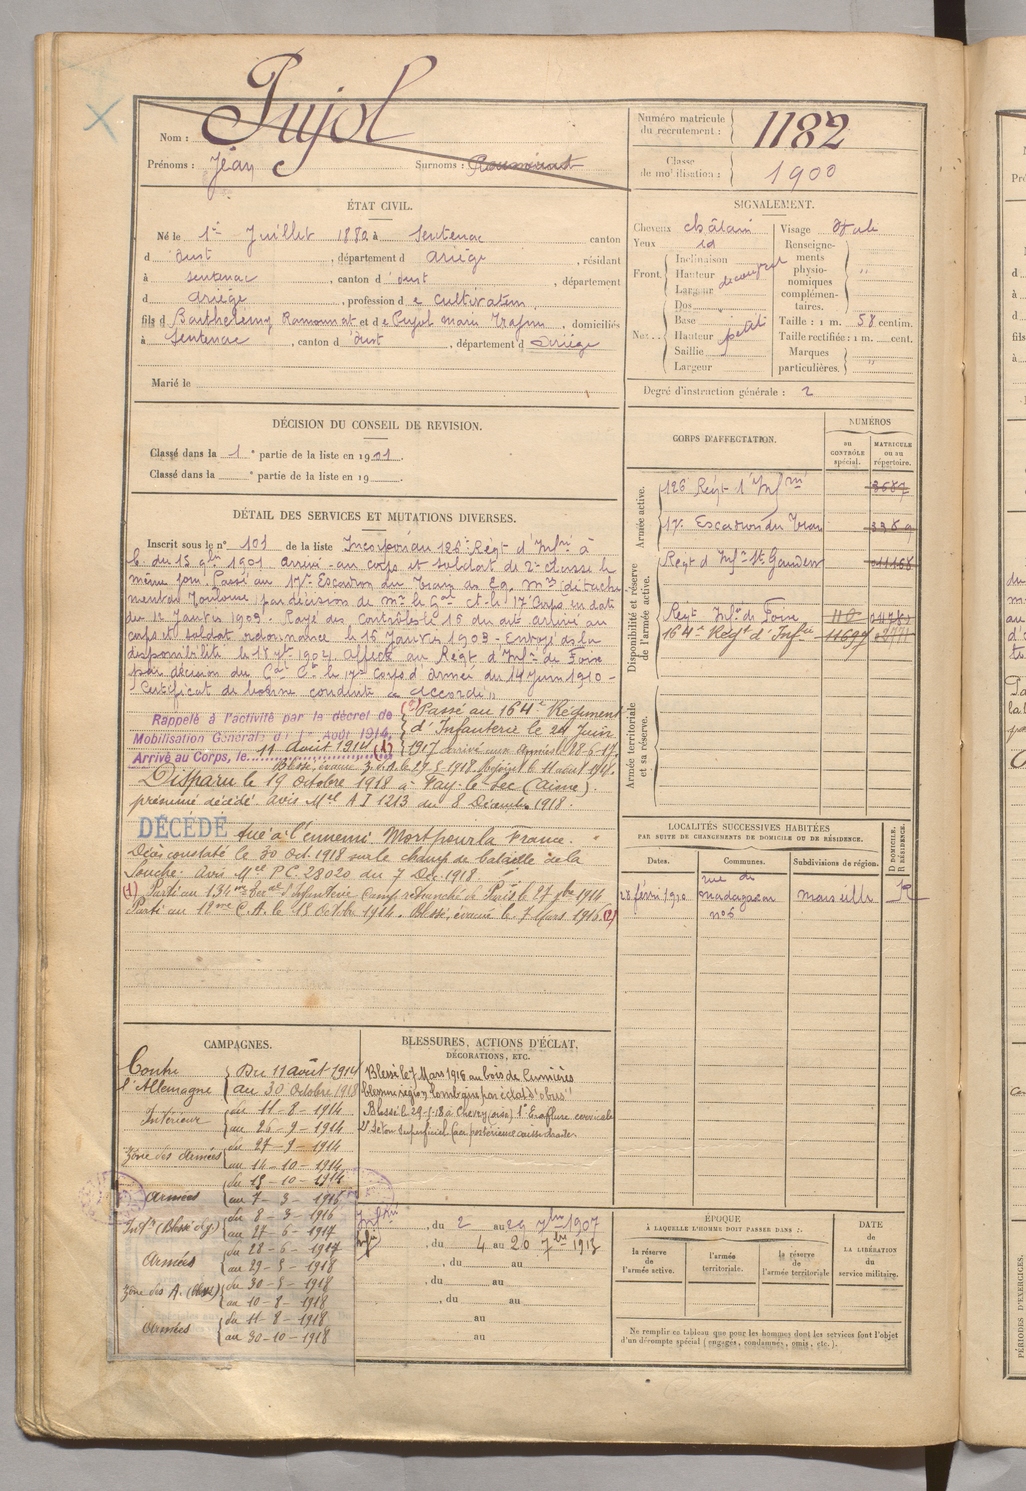 Pujol
Nom :
Prénoms : Jean Surnoms :
Numéro matricule
du recrutement : 1182
Classe
de mobilisation : 1900
ÉTAT CIVIL.
Né le 1er Juillet 1880 à Sentenac canton
d Oust , département d Ariège , résidant
à Sentenac , canton d Oust , département
d Ariège , profession de cultivateur
fils d Barthelemy Ramounat et de Pujol Marie , domiciliés
à Sentenac , canton d Oust , département d Ariège
Marié le
SIGNALEMENT.
Cheveux châtain
Yeux id
Front. Inclinaison
Hauteur découvert
Largeur
Nez : Dos
Base
Hauteur petit
Saillie
Largeur
Visage ovale
Renseigne-
ments
physio-
nomiques
complémen-
taires. "
Taille : 1 m. 58 centim.
Taille rectifiée : 1 m. cent.
Marques
particulières. "
Degré d'instruction générale : 2
DÉCISION DU CONSEIL DE REVISION.
Classé dans la 1e partie de la liste en 1901.
Classé dans la e partie de la liste en 19 .
DÉTAIL DES SERVICES ET MUTATIONS DIVERSES.
Inscrit sous le n° 101 de la liste Incorporé au 126e Régt d'Infrie à
c. du 15 9bre 1901 arrivé au corps et soldat de 2e classe le
même jour. Passé au 17e Escadron du Train des Eq. mres (détache
ment de Toulouse) par décision de mr le Gal Ct le 17e Corps en date
du 12 Janvier 1903. Rayé des contrôles le 15 du dit arrivé au
corps et soldat ordonnance le 16 Janvier 1903 - Envoyé dans la
disponibilité le 18 7bre 1904 Affecté au Régt d'Infie de Foix
par décision du Gal Ct le 17e Corps d'Armée du 14 Juin 1910 -
"Certificat de bonne conduite" accordé "
Rappelé à l'activité par le décret de
Mobilisation Générale du 1er Août 1914,
Arrivé au Corps, le 11 août 1914 (1)
(2) Passé au 164e Régiment
d'Infanterie le 24 Juin
1917 arrivé aux armées le 28-6-17.
Blessé, évacué Z. d. A. le 29-5-1918. Rejoint le 11 août 1918.
Disparu le 19 octobre 1918 à Fay-le-Sec (Aisne).
présumé décédé avis Mel A I 1213 du 8 Décembre 1918.
DÉCÉDÉ tué à l'ennemi Mort pour la France.
Décès constaté le 30 Oct. 1918 sur le champ de bataille de la
Souche. avis Mel P.C. 28020 du 7 Déc. 1918.
(1) Parti au 134me Terral d'Infanterie Camp retranché de Paris le 27 7bre 1914
Parti au 18me C. A. le 15 octobre 1914. Blessé, évacué le 7 Mars 1916 (2)
CORPS D'AFFECTATION.
NUMÉROS
au
CONTRÔLE
spécial.
MATRICULE
ou au
répertoire.
Armée active.
126 Régt d'Infrie
17e Escadron du Train
Disponibilité et réserve
de l'armée active.
Régt d'Infie St Gaudens
Régt Infie de Foix
164e Régt d'Infie 11697
Armée territoriale
et sa réserve.
LOCALITÉS SUCCESSIVES HABITÉES
PAR SUITE DE CHANGEMENTS DE DOMICILE OU DE RÉSIDENCE.
Dates. Communes. Subdivisions de région. D DOMICILE.
R RÉSIDENCE.
rue de
28 février 1910 madagascar Marseille R
n° 6
CAMPAGNES.
Contre Du 11 août 1914
l'Allemagne au 30 Octobre 1918
Intérieur du 11-8-1914
au 26-9-1914
Zône des Armées du 27-9-1914
au 14-10-1914
Armées du 15-10-1914
au 7-3-1916
Intr (Blessé de g.) du 8-3-1916
au 27-6-1917
Armées du 28-6-1917
au 29-5-1918
Zône des A. (Blessé) du 30-5-1918
au 10-8-1918
Armées du 11-8-1918
au 30-10-1918
BLESSURES, ACTIONS D'ÉCLAT,
DÉCORATIONS, ETC.
Blessé le 7 Mars 1916 au bois de Cumières
"blessure région lombaire par éclat d'obus"
Blessé le 29-5-18 à Chevry (Oise) 1° Eraflure cervicale
2° Séton superficiel face postérieure cuisse droite.
PÉRIODES D'EXERCICES.
, du 2 au 29 7bre 1907
, du 4 au 20 7bre 1913
, du au
, du au
, du au
au
au
ÉPOQUE
À LAQUELLE L'HOMME DOIT PASSER DANS :
la réserve
de
l'armée active.
l'armée
territoriale.
la réserve
de
l'armée territoriale
DATE
de
LA LIBÉRATION
du
service militaire.
Ne remplir ce tableau que pour les hommes dont les services font l'objet
d'un décompte spécial (engagés, condamnés, omis, etc.).